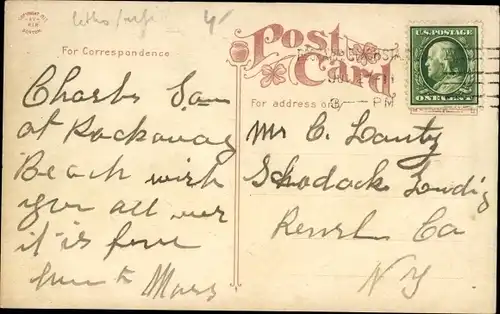 litho/
4
COPYRIGHT 1911
BOSTON
For Correspondence
POST
CARD
For address only
3 — PM
U.S. POSTAGE
ONE CENT
Charles Sam
at Rockaway
Beach wish
you all wer
it is fine
Mary
Mr C. Lantz
Schodack Landig
Rensl Co
N Y